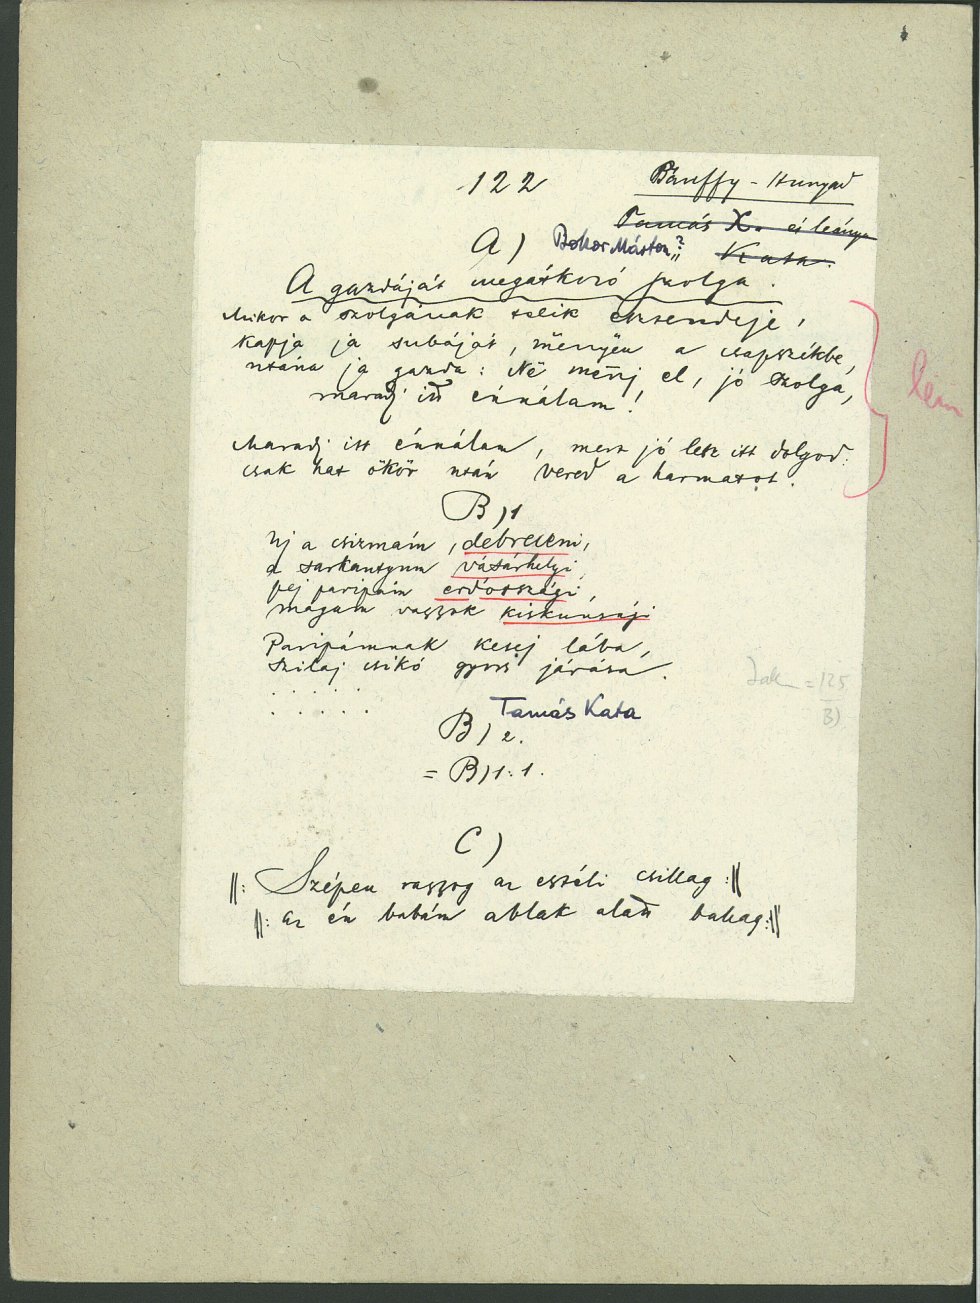 122
Bánffy-Hunyad
Tamás X. és leánya
Kata.
A) Bokor Márton?
A gazdáját megátkozó szolga.
Mikor a szolgának telik esztendeje,
kapja ja subáját, mënnyën a csapszékbe,
utána ja gazda: Në mënj el, jó szolga,
maradj itt énnálam!
Maradj itt énnálam, mert jó lesz itt dolgod:
csak hat ökör után vered a harmatot.
B) 1
Uj a csizmám, debreceni,
a sarkantyum vásárhelyi,
pej paripám erdőszági,
magam vagyok kiskunsági
Paripámnak kesej lába,
Szilaj csikó gyors járása.
. . . . .
. . . . .
Tamás Kata
B) 2.
= B) 1:1.
= 125
B)
C)
||: Szépen ragyog az esteli csillag :||
||: az én babám ablak alatt ballag :||